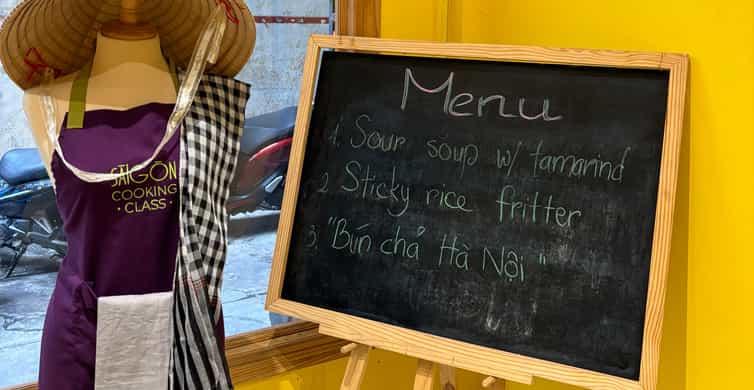 SÀIGÒN
COOKING
• CLASS •
Menu
1. Sour soup w/ tamarind
2. Sticky rice fritter
3. "Bún chả Hà Nội"